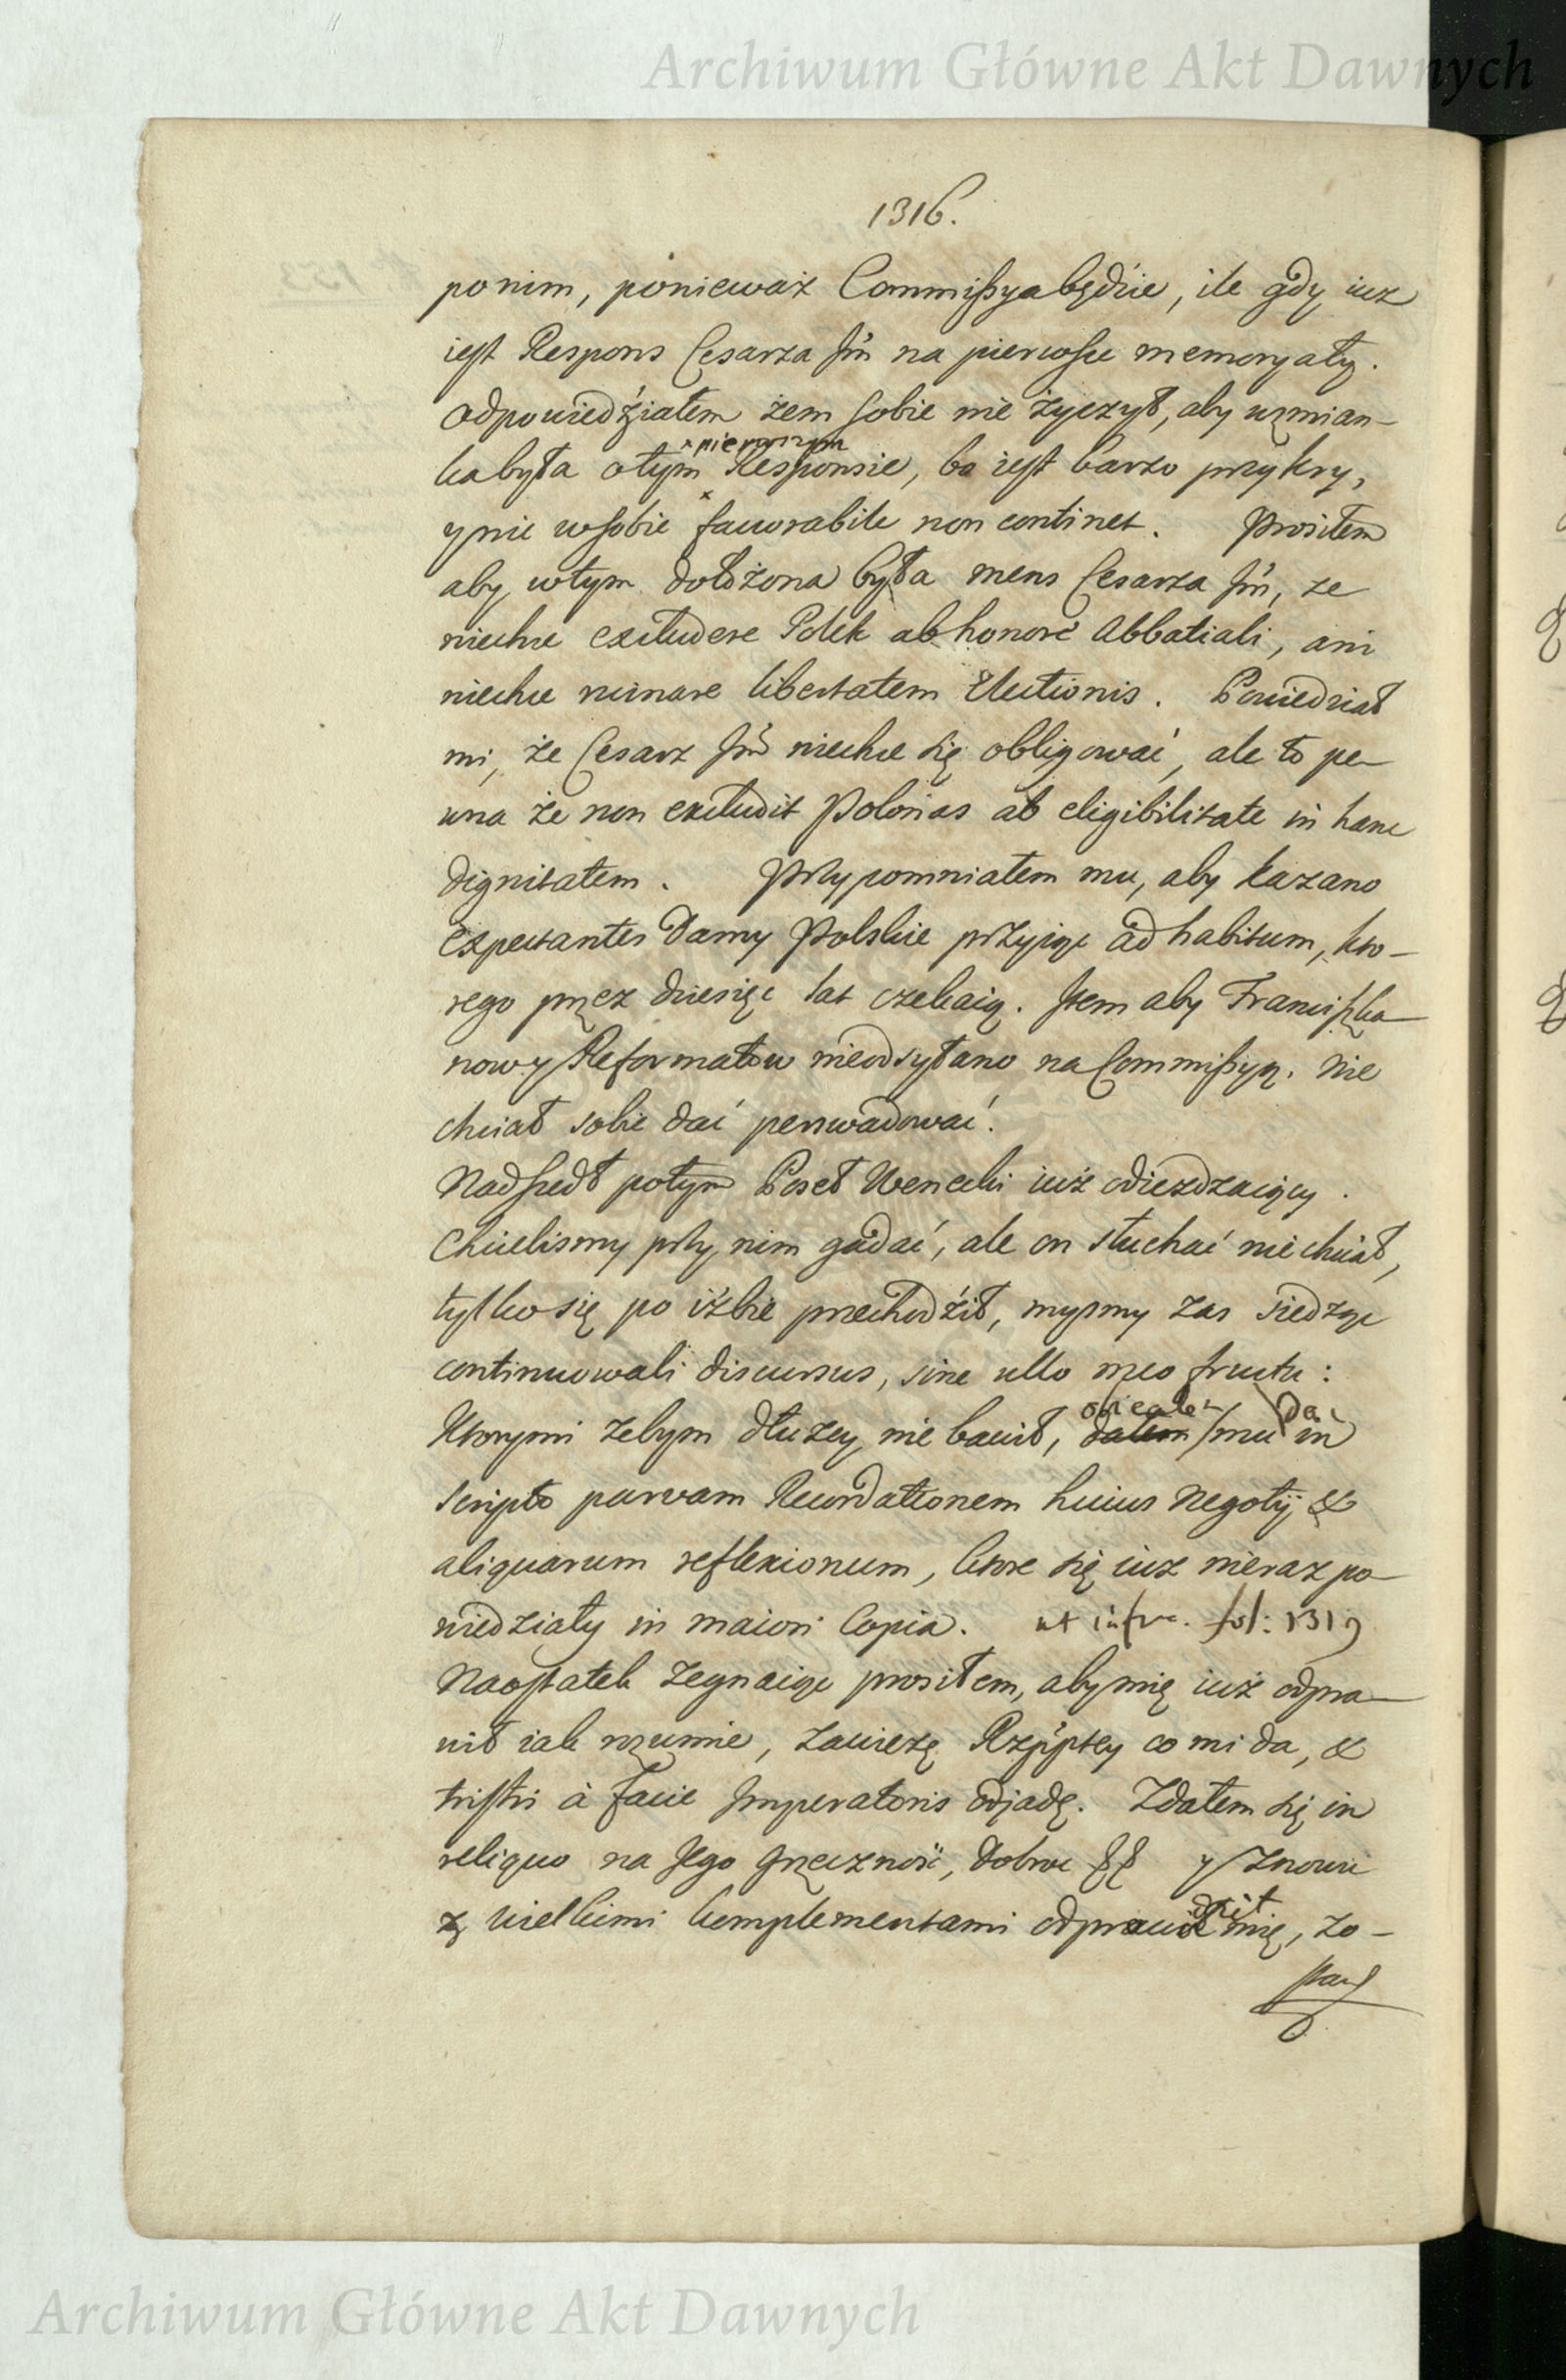 Archiwum Główne Akt Dawnych
1316.
ponim, ponieważ Commissya będzie, ile gdy iuz
iest Respons Cesarza Jm̃ na pierwsze memoryały.
odpowiedźiałem żem sobie nie życzył, aby wzmian-
ka była o tym ×pierwszym Responsie, bo iest barzo przykry,
y nic w sobie × fauorabile non continet. Prosiłem
aby w tym dołożona była mens Cesarza Jm̃, ze
niechce excludere Polek ab honore Abbatiali, ani
niechce ruinare libertatem Electionis. Powiedział
mi, że Cesarz Jm̃ niechce się obligować, ale to pe-
wna że non excludit Polonas ab eligibilitate in hanc
dignitatem. Przypomniałem mu, aby kazano
expectantes Damy Polskie przyiąc ad habitum, kto-
rego przez dziesięc lat czekaią. Item aby Franciszka-
now y Reformatow nieodsyłano na Commissyą. Nie
chciał sobie dać perswadować.
Nadszedł potym Poseł Wenecki iuż odiezdzaiący.
Chcielismy przy nim gadać, ale on słuchać nie chciał,
tylko się po iźbie przechodźił, mysmy zas siedząc
continuowali discursus, sine ullo meo fructu:
Ktorymi zebym dłuzey nie bawił, dałem mu in
scripto parvam Recordationem huius Negotij &
aliquarum reflexionum, ktore się iuz nieraz po-
wiedziały in maiori Copia. ut infra. fol: 1319
Naostatek zegnaiąc prosiłem, aby mię iuż odpra-
wił iak rozumie, zawiezę Rzptey co mi da, &
tristis à facie Imperatoris odjadę. Zdałem się in
reliquo na Jego grzeczność, dobroc y znowu
z wielkimi komplementami odprawił mię, zo-
staw
Archiwum Główne Akt Dawnych